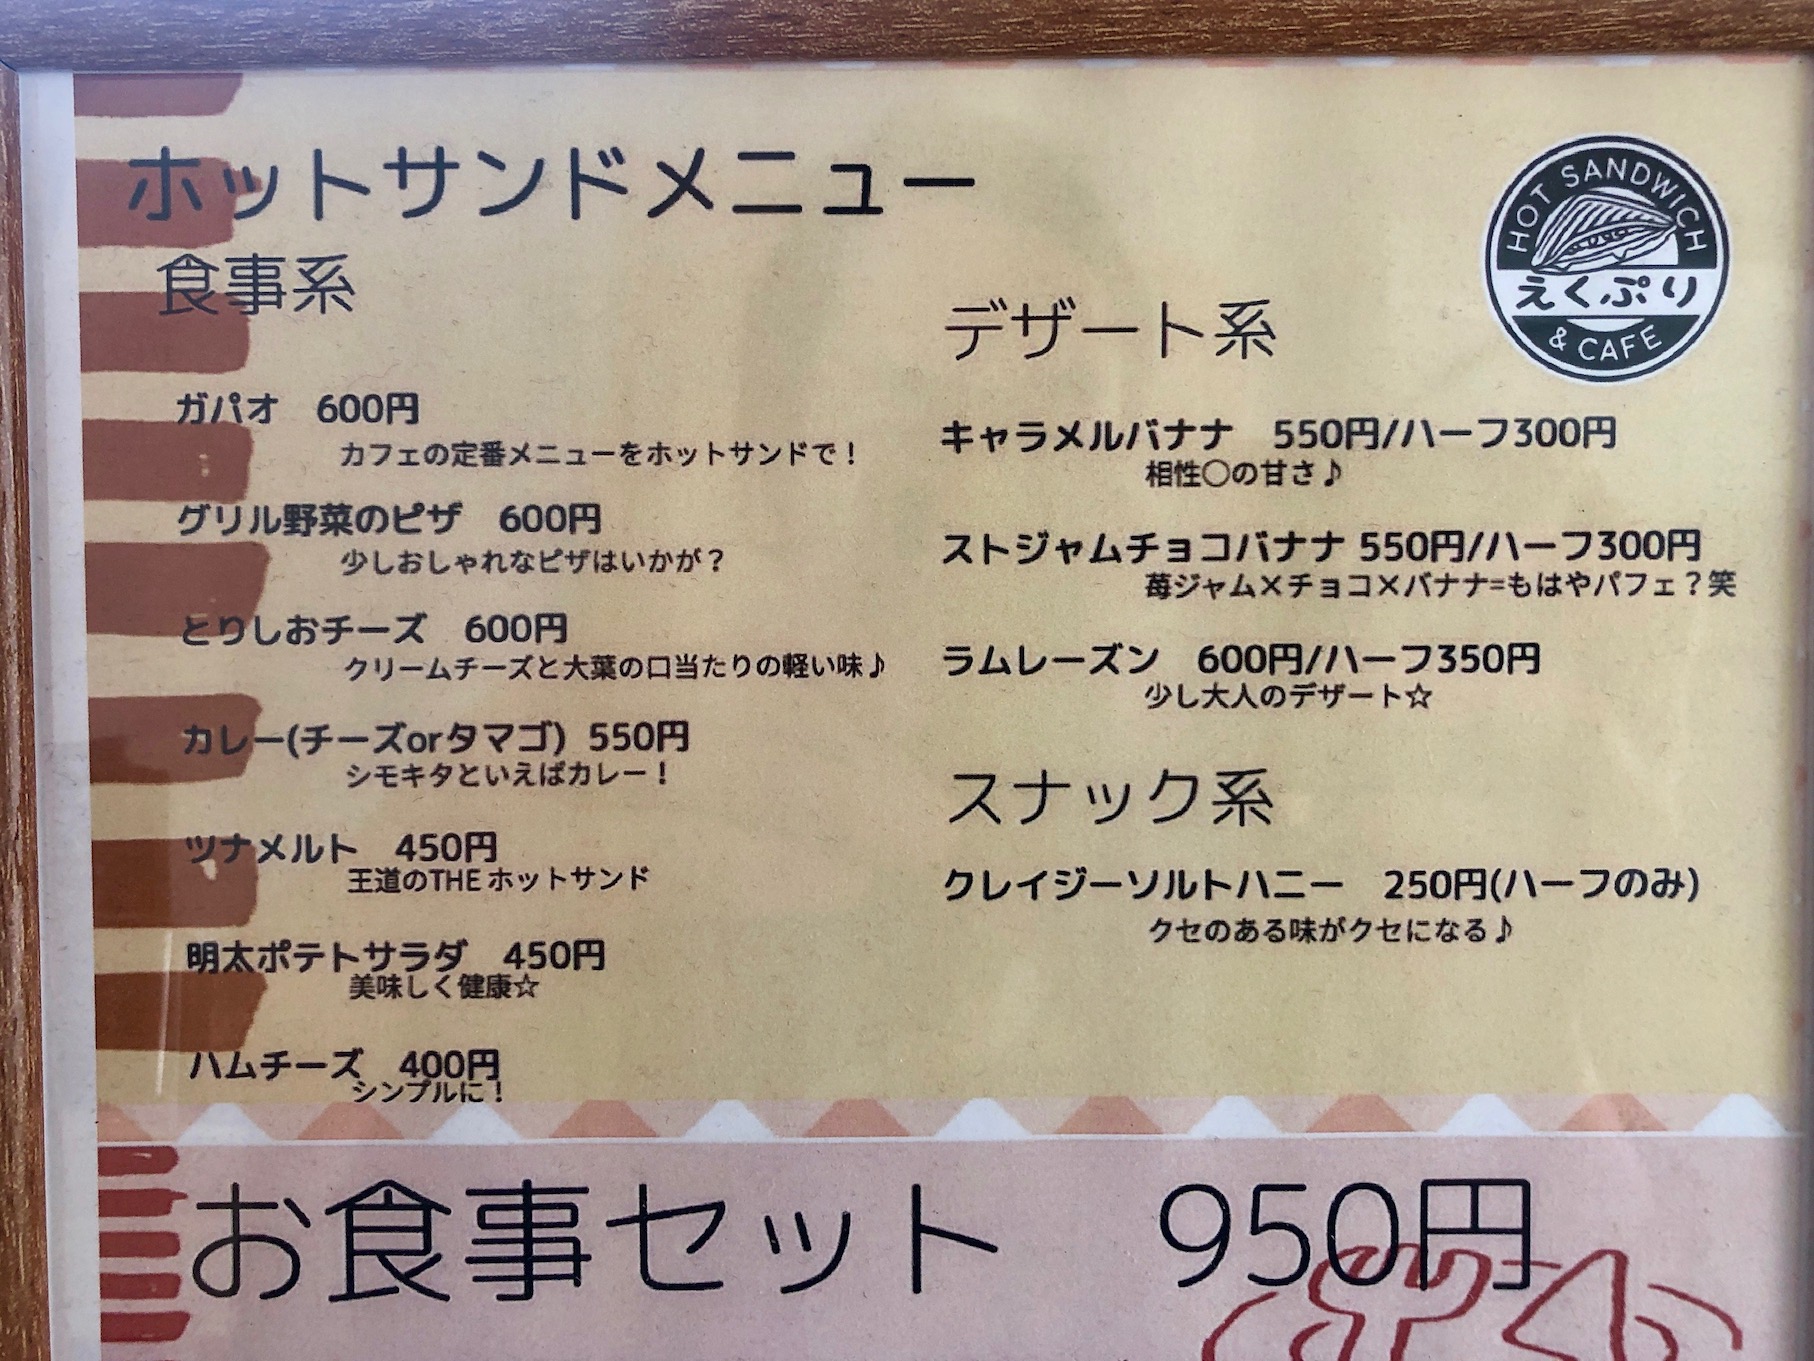 ホットサンドメニュー
食事系
ガパオ 600円
カフェの定番メニューをホットサンドで！
グリル野菜のピザ 600円
少しおしゃれなピザはいかが？
とりしおチーズ 600円
クリームチーズと大葉の口当たりの軽い味♪
カレー(チーズorタマゴ) 550円
シモキタといえばカレー！
ツナメルト 450円
王道のTHE ホットサンド
明太ポテトサラダ 450円
美味しく健康☆
ハムチーズ 400円
シンプルに！
HOT SANDWICH
えくぷり
& CAFE
デザート系
キャラメルバナナ 550円/ハーフ300円
相性〇の甘さ♪
ストジャムチョコバナナ 550円/ハーフ300円
苺ジャム×チョコ×バナナ=もはやパフェ？笑
ラムレーズン 600円/ハーフ350円
少し大人のデザート☆
スナック系
クレイジーソルトハニー 250円(ハーフのみ)
クセのある味がクセになる♪
お食事セット 950円